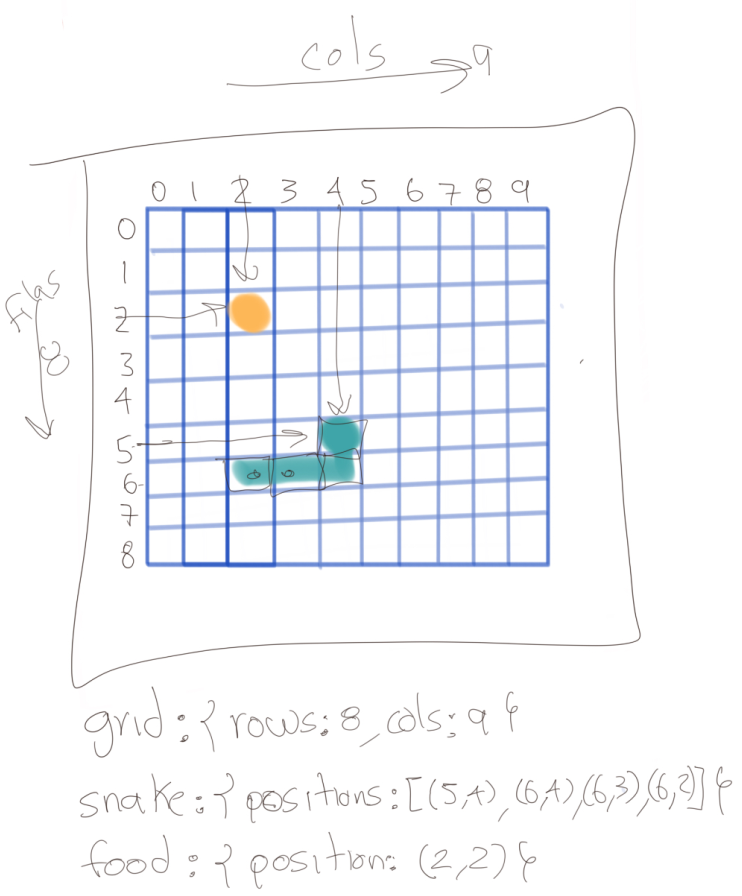 cols 9
0 1 2 3 4 5 6 7 8 9
0
1
filas
2
8
3
4
5
6
7
8
grid: { rows: 8, cols: 9 }
snake: { positions: [(5,4), (6,4), (6,3) (6,2)] }
food: { position: (2,2) }